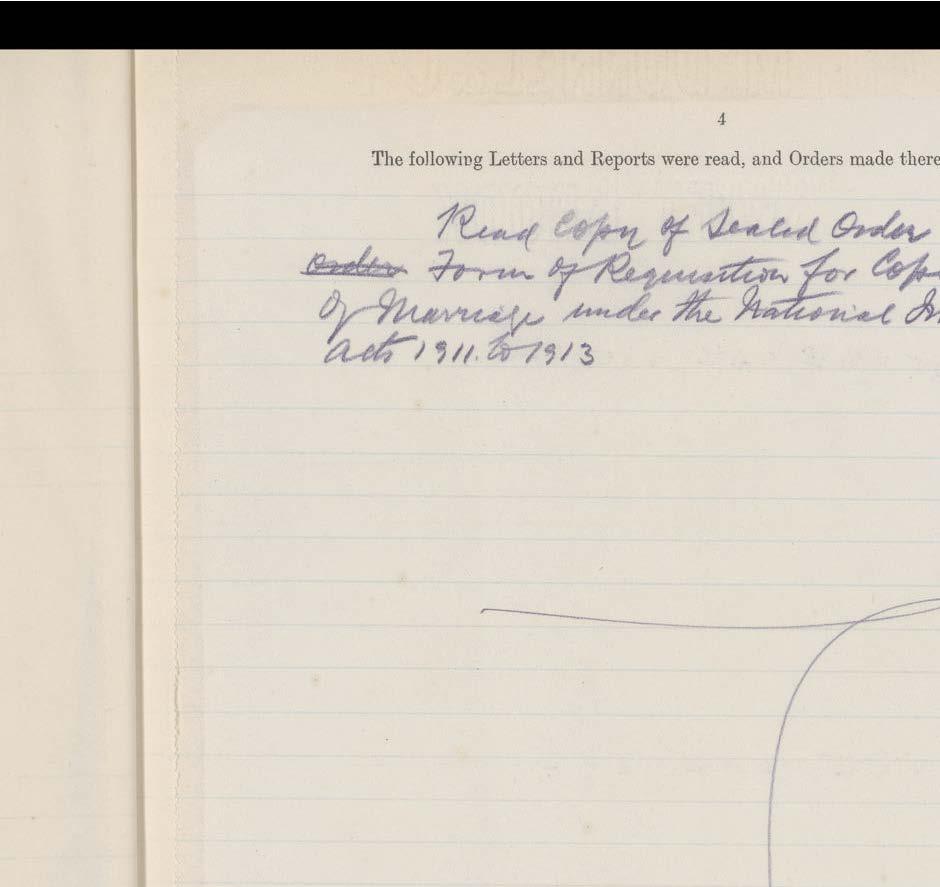 4
The following Letters and Reports were read, and Orders made there
Read Copy of Sealed Order
Order Form of Requisition for Cop
Of Marriage under the National In
Acts 1911. to 1913